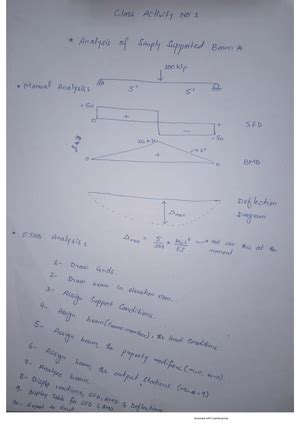 Class Activity No.1
* Analysis of Simply Supported Beam *
100 Kip
• Manual Analysis:
5' 5'
+50
0 + 0 SFD
-
-50
0 + 0 BMD
Deflection
Δmax Diagram
Δmax = 5/384 * → Not use this at the
moment
• ETAB Analysis:
1- Draw Grids.
2- Draw beam in elevation view.
3- Assign Support Conditions.
4- Assign beam (frame member), the load conditions
5- Assign beam, the property modifiers
6- Assign beam, the output stations.
7- Analyze beam.
8- Display reactions, SFD, BMD, & Deflections
9. Display Table for SFD & BMD
10- Export to Excel
Scanned with CamScanner